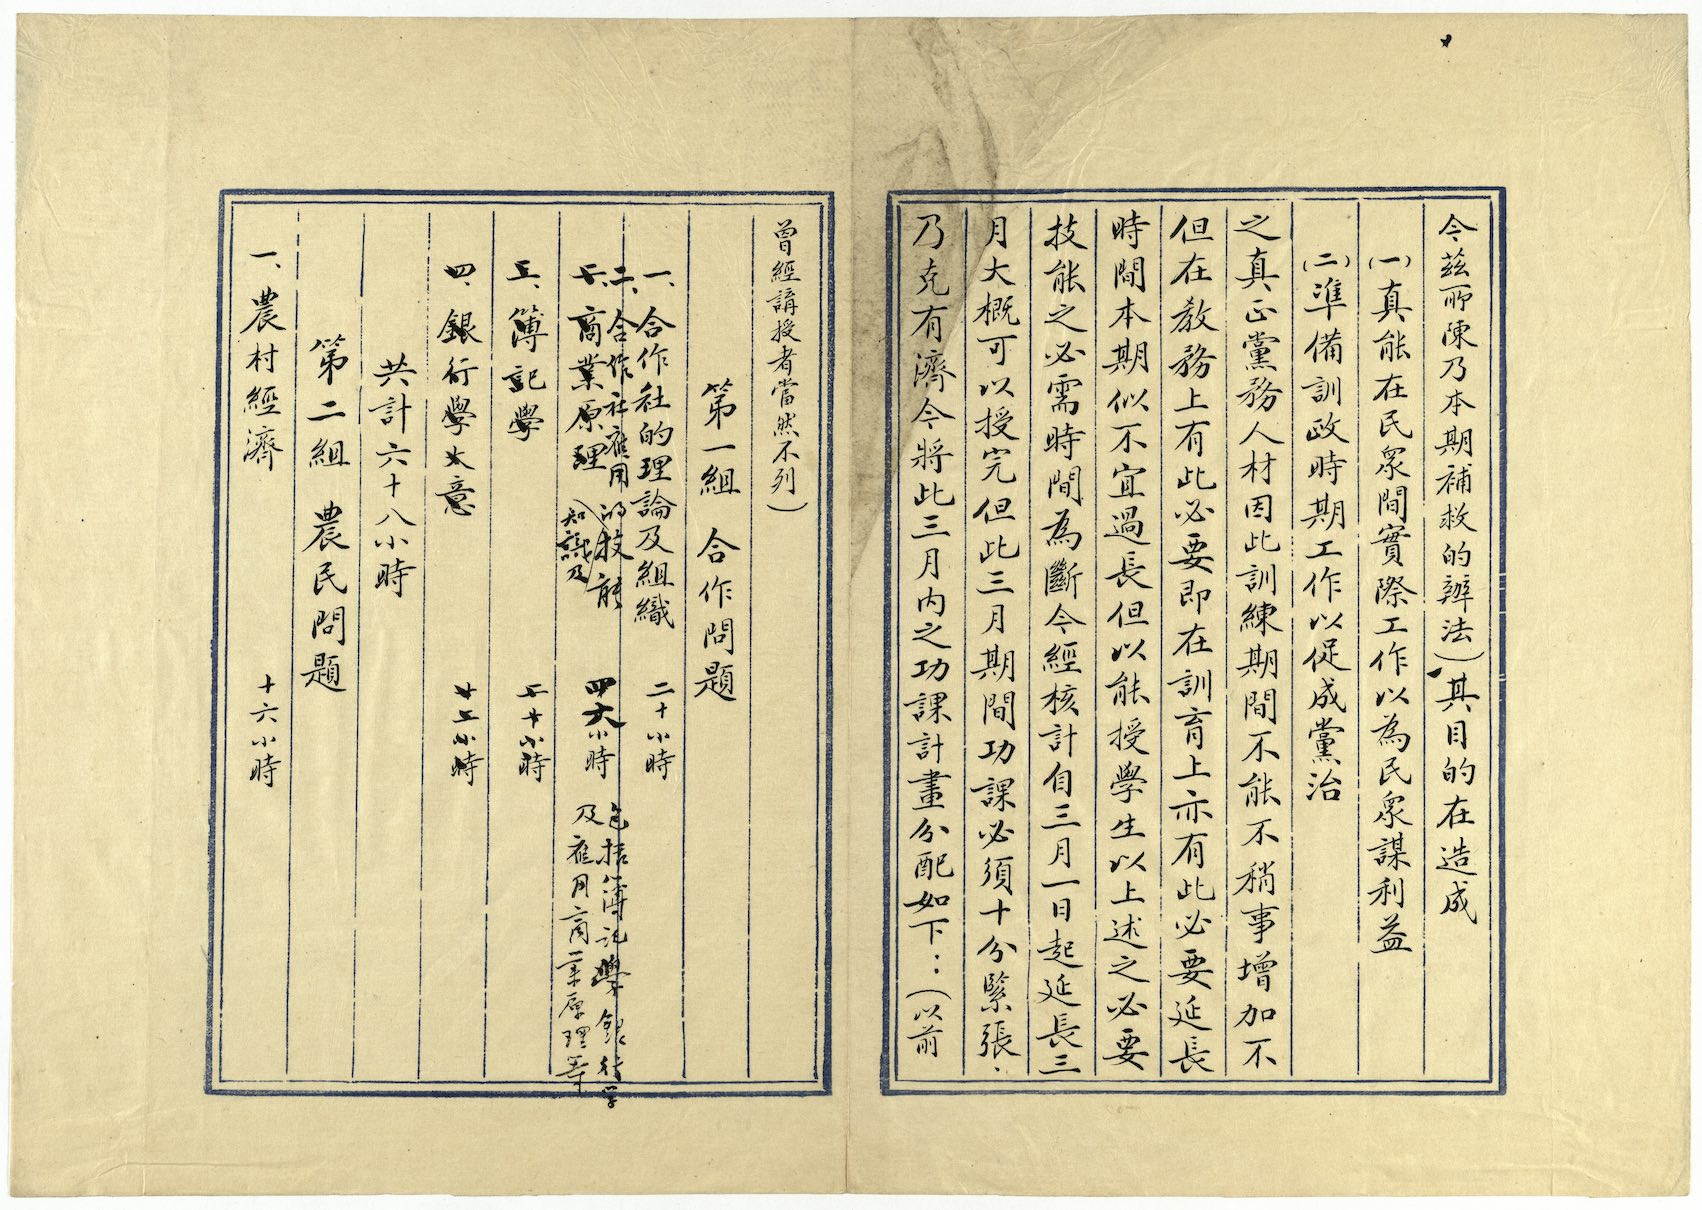 今茲所陳乃本期補救的辦法)其目的在造成
(一)真能在民眾間實際工作以為民眾謀利益
(二)準備訓政時期工作以促成黨治
之真正黨務人材因此訓練期間不能不稍事增加不
但在教務上有此必要即在訓育上亦有此必要延長
時間本期似不宜過長但以能授學生以上述之必要
技能之必需時間為斷今經核計自三月一日起延長三
月大概可以授完但此三月期間功課必須十分緊張、
乃克有濟今將此三月內之功課計畫分配如下：(以前
曾經講授者當然不列)
第一組 合作問題
一、合作社的理論及組織 二十小時
二、合作社應用的技能
知識及
包括簿記學銀行學
及應用商業原理等
二、商業原理 四六小時
三、簿記學 二十小時
四、銀行學大意 十二小時
共計六十八小時
第二組 農民問題
一、農村經濟 十六小時